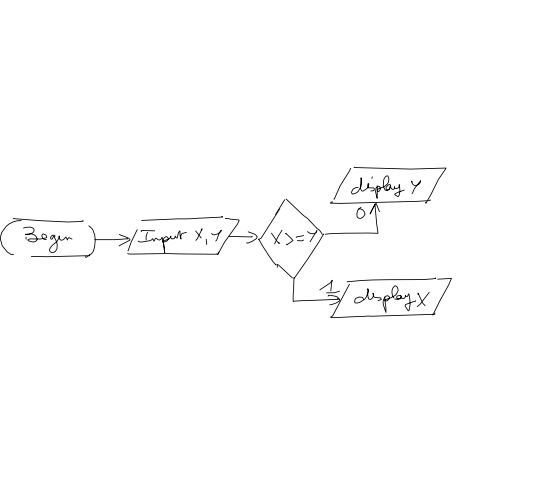 Begin
Input X, Y
X>=Y
0
display Y
1
display X